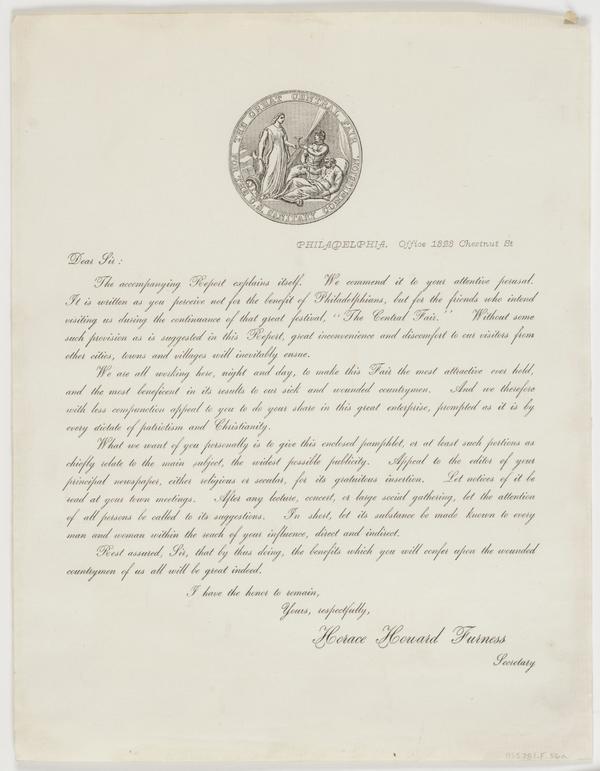 THE GREAT CENTRAL FAIR
FOR THE U.S. SANITARY COMMISSION
PHILADELPHIA. Office 1323 Chestnut St
Dear Sir:
The accompanying Report explains itself. We commend it to your attentive perusal.
It is written as you perceive not for the benefit of Philadelphians, but for the friends who intend
visiting us during the continuance of that great festival, "The Central Fair." Without some
such provision as is suggested in this Report, great inconvenience and discomfort to our visitors from
other cities, towns and villages will inevitably ensue.
We are all working here, night and day, to make this Fair the most attractive ever held,
and the most beneficent in its results to our sick and wounded countrymen. And we therefore
with less compunction appeal to you to do your share in this great enterprise, prompted as it is by
every dictate of patriotism and Christianity.
What we want of you personally is to give this enclosed pamphlet, or at least such portions as
chiefly relate to the main subject, the widest possible publicity. Appeal to the editor of your
principal newspaper, either religious or secular, for its gratuitous insertion. Let notices of it be
read at your town meetings. After any lecture, concert, or large social gathering, let the attention
of all persons be called to its suggestions. In short, let its substance be made known to every
man and woman within the reach of your influence, direct and indirect.
Rest assured, Sir, that by thus doing, the benefits which you will confer upon the wounded
countrymen of us all will be great indeed.
I have the honor to remain,
Yours, respectfully,
Horace Howard Furness
Secretary